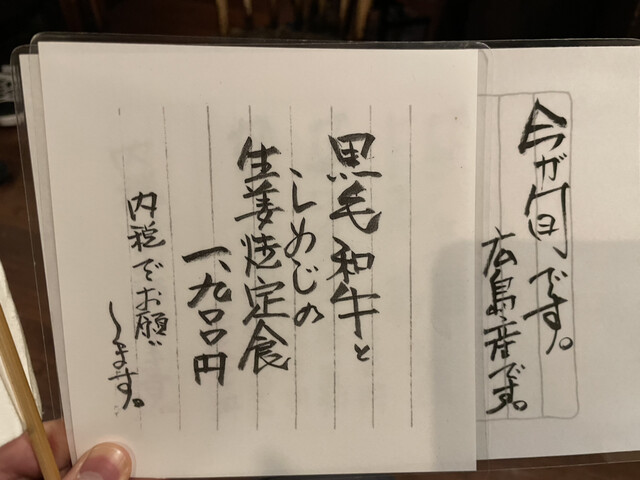 今が旬です。
広島産です。
黒毛和牛と
しめじの
生姜焼定食
一、九〇〇円
内税でお願い
します。